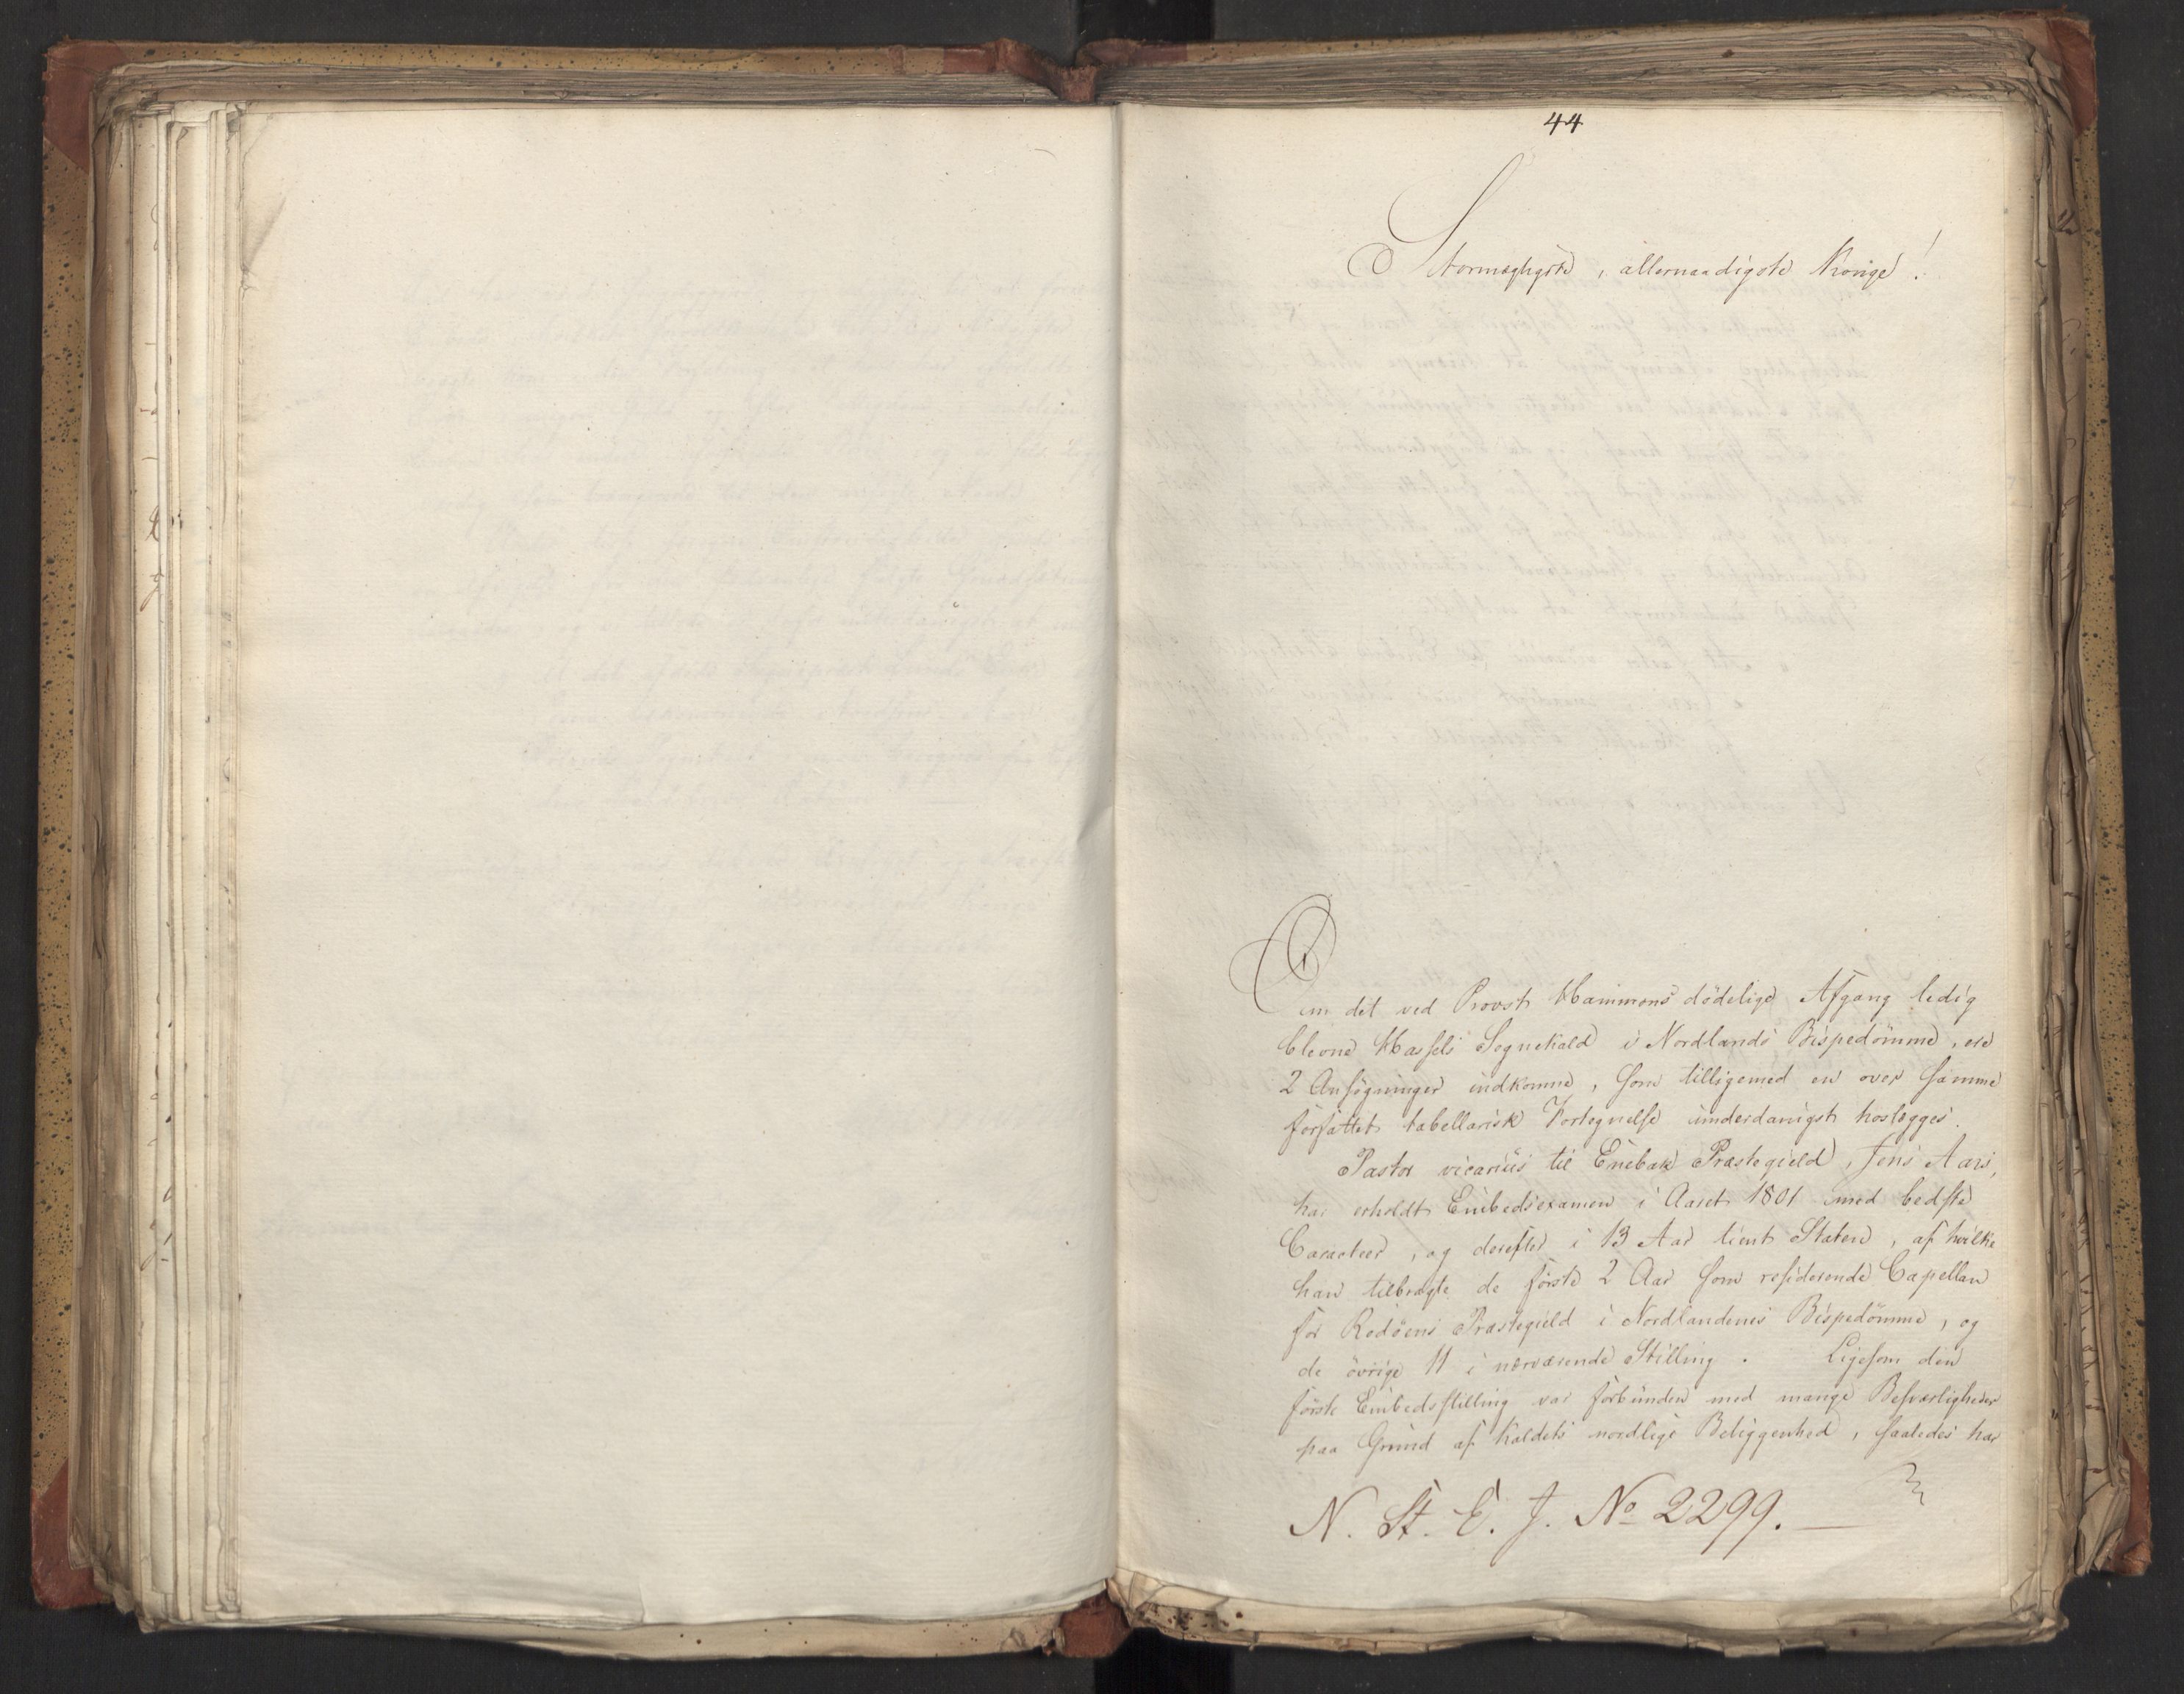 44
Stormægtigste, allernaadigste Konge!
Om det ved Provst Hammons dödelige Afgang ledig
blevne Hassels Sognekald i Nordlands Bispedömme, ere
2 Ansögninger indkomne, som tilligemed en over samme
forfattet tabellarisk Fortegnelse underdanigst hoslægges.
Pastor vicarius til Enebak Præstegield, Jens Aars,
har erholdt Embedsexamen i Aaret 1801 med bedste
Caracteer, og derefter i 13 Aar tient Staten, af hvilke
han tilbragte de förste 2 Aar som residerende Capellan
for Rodöens Præstegield i Nordlandenes Bispedömme, og
de övrige 11 i nærværende Stilling. Ligesom den
förste Embedsstilling var forbunden med mange Besværligheder
paa Grund af Kaldets nordlige Beliggenhed, saaledes har
N. St. E. J. No 2299.